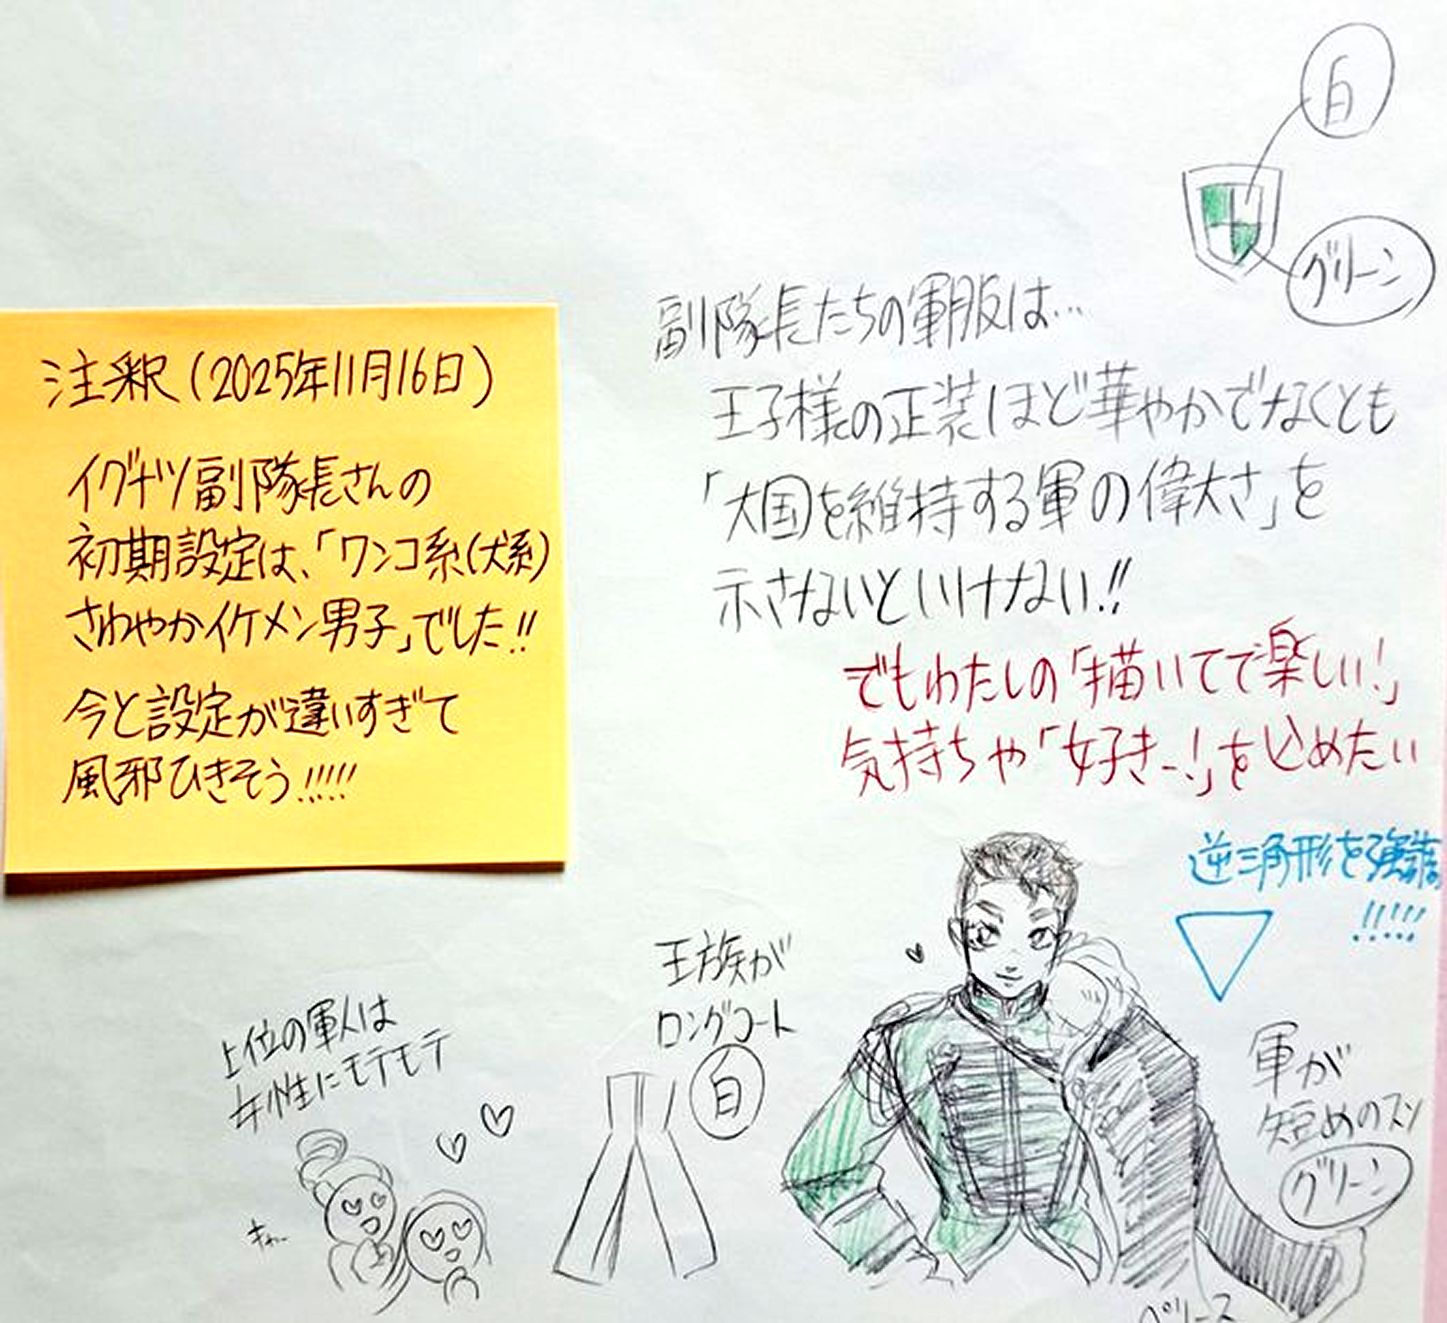 白
グリーン
副隊長たちの軍服は…
王子様の正装ほど華やかでなくとも
「大国を維持する軍の偉大さ」を
示さないといけない!!
でもわたしの「描いてて楽しい!」
気持ちや「好きー!」を込めたい
注釈(2025年11月16日)
イグナツ副隊長さんの
初期設定は、「ワンコ系(犬系)
さわやかイケメン男子」でした!!
今と設定が違いすぎて
風邪ひきそう!!!!!
逆三角形を強調
!!!!!
王族が
ロングコート
白
上位の軍人は
女性にモテモテ
きゃー
軍が
短めのスソ
グリーン
ペリース